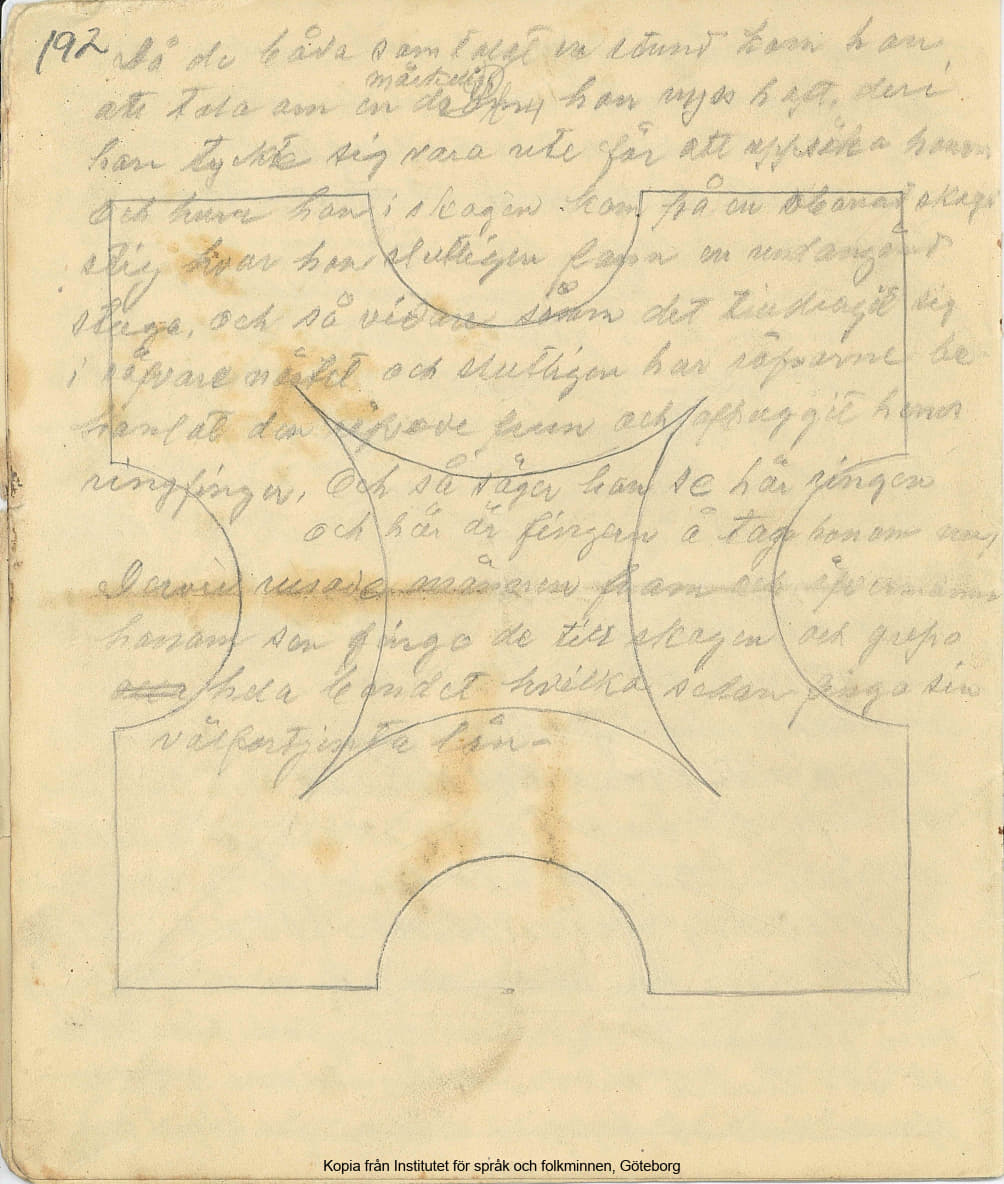 192
Då de båda samtalat en stund kom hon
märkelig
att tala om en dröm hon nyss haft, deri
hon tyckte sig vara ute för att uppsöka honom
och huru hon i skogen kom på en obanad skogs
stig hvar hon slutligen fann en undangömd
stuga, och så vidare som det tilldragit sig
i röfvare nästet och slutligen har röfvarne be-
hanlat den röfvade frun och afhuggit hennes
ringfinger, Och så säger hon se här ringen
och här är fingren å tag honom nu,
Dervid rusade männen fram och öfvermanna
honom sen fingo de till skogen och grepo
hela bandet hvilka sedan fingo sin
välfortjenta lön-
Kopia från Institutet för språk och folkminnen, Göteborg